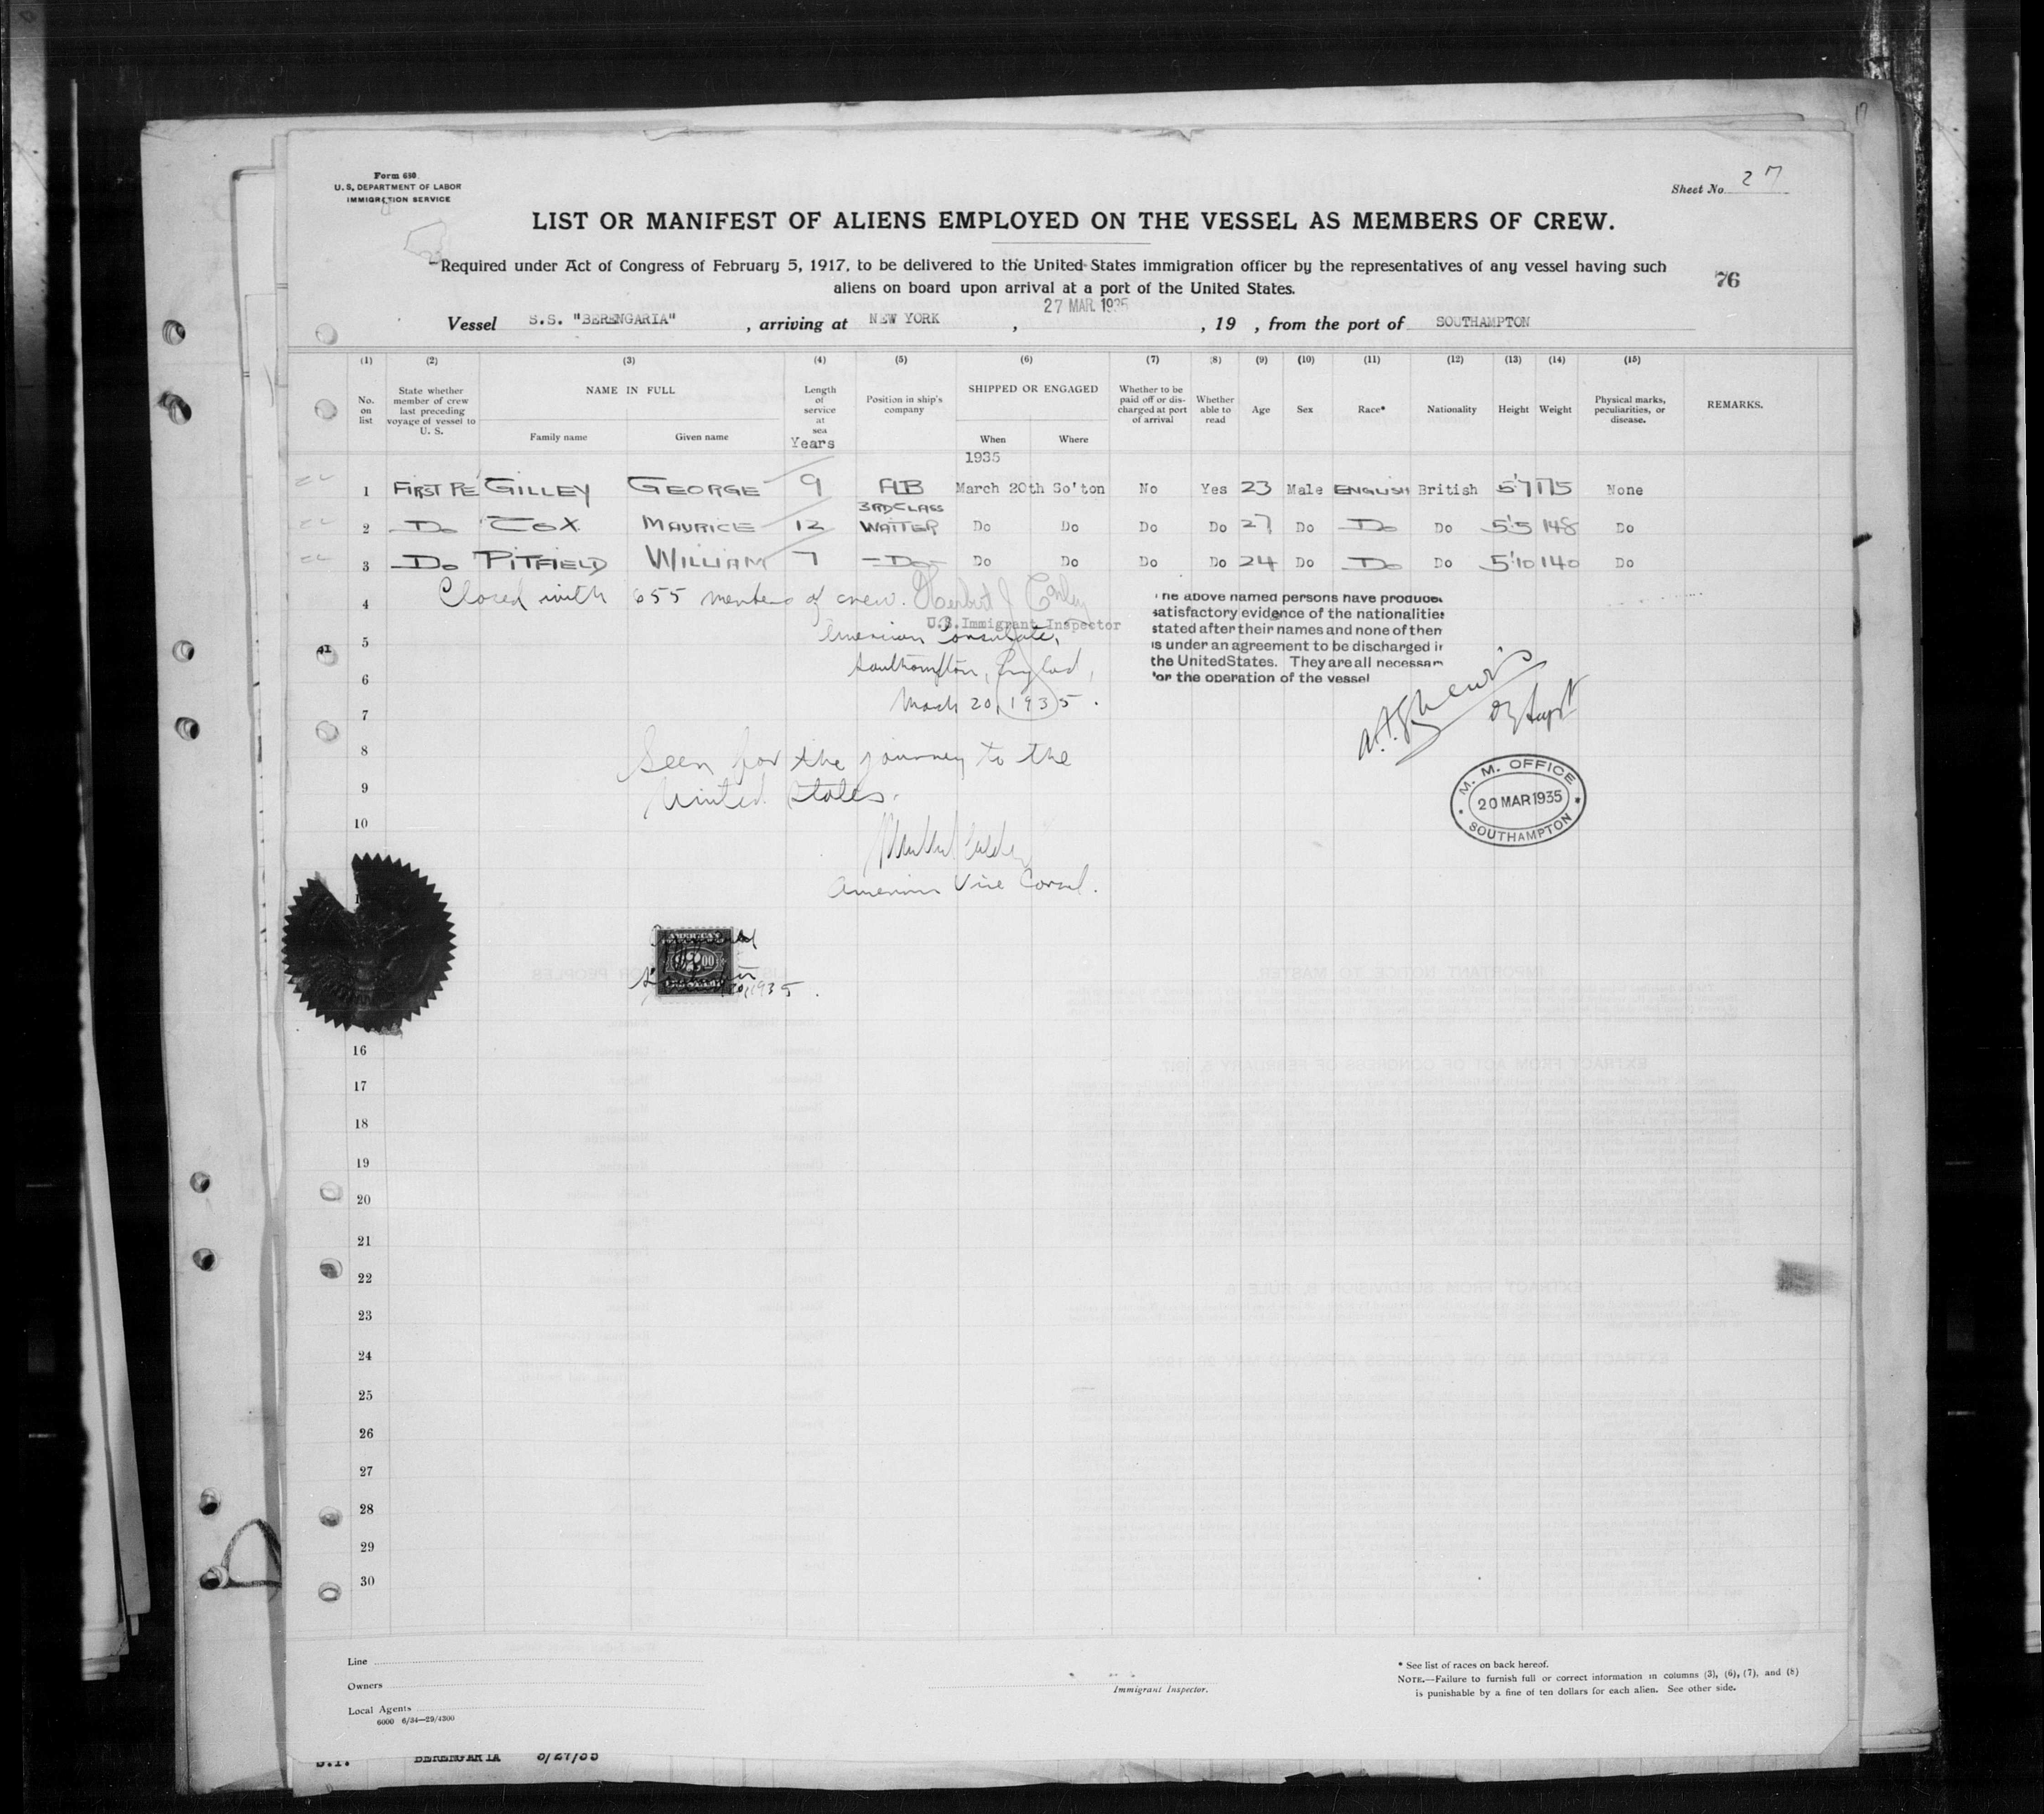 Form 680
U. S. DEPARTMENT OF LABOR
IMMIGRATION SERVICE
Sheet No. 27
LIST OR MANIFEST OF ALIENS EMPLOYED ON THE VESSEL AS MEMBERS OF CREW.
Required under Act of Congress of February 5, 1917, to be delivered to the United States immigration officer by the representatives of any vessel having such
aliens on board upon arrival at a port of the United States.
76
27 MAR 1935
Vessel S.S. "BERENGARIA" , arriving at NEW YORK , , 19 , from the port of SOUTHAMPTON
(1) (2) (3) (4) (5) (6) (7) (8) (9) (10) (11) (12) (13) (14) (15)
No. on list
State whether member of crew last preceding voyage of vessel to U. S.
NAME IN FULL
Family name Given name
Length of service at sea
Years
Position in ship's company
SHIPPED OR ENGAGED
When Where
1935
Whether to be paid off or discharged at port of arrival
Whether able to read
Age
Sex
Race*
Nationality
Height
Weight
Physical marks, peculiarities, or disease.
REMARKS.
1 FIRST PE GILLEY GEORGE 9 AB March 20th So'ton No Yes 23 Male ENGLISH British 5'7 175 None
2 Do COX MAURICE 12 3RD CLASS WAITER Do Do Do Do 27 Do Do Do 5'5 148 Do
3 Do PITFIELD WILLIAM 7 Do Do Do Do Do 24 Do Do Do 5'10 140 Do
4 Closed with 655 members of crew.
U.S. Immigrant Inspector
5 American Consulate,
6 Southampton, England,
7 March 20, 1935.
The above named persons have produced
satisfactory evidence of the nationalities
stated after their names and none of them
is under an agreement to be discharged in
the United States. They are all necessary
for the operation of the vessel
41
8 Seen for the journey to the
9 United States.
10
American Vice Consul.
M. M. OFFICE
20 MAR 1935
SOUTHAMPTON
AMERICAN
20, 1935.
16
17
18
19
20
21
22
23
24
25
26
27
28
29
30
Line
Owners
Local Agents
6000 6/34—29/4300
Immigrant Inspector.
* See list of races on back hereof.
NOTE.—Failure to furnish full or correct information in columns (3), (6), (7), and (8)
is punishable by a fine of ten dollars for each alien. See other side.
BERENGARIA 3/27/35